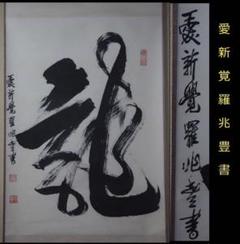 愛新覚羅兆豊書
愛新覺羅兆豊書
龍
愛新覺羅兆豊書